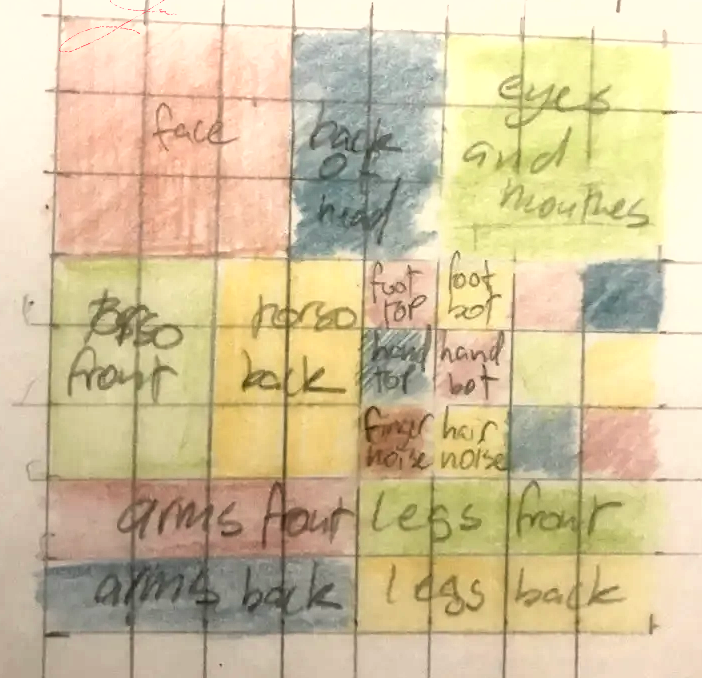 face
back
of
head
eyes
and
mouthes
torso
front
torso
back
foot
top
foot
bot
hand
top
hand
bot
finger
noise
hair
noise
arms front
legs front
arms back
legs back